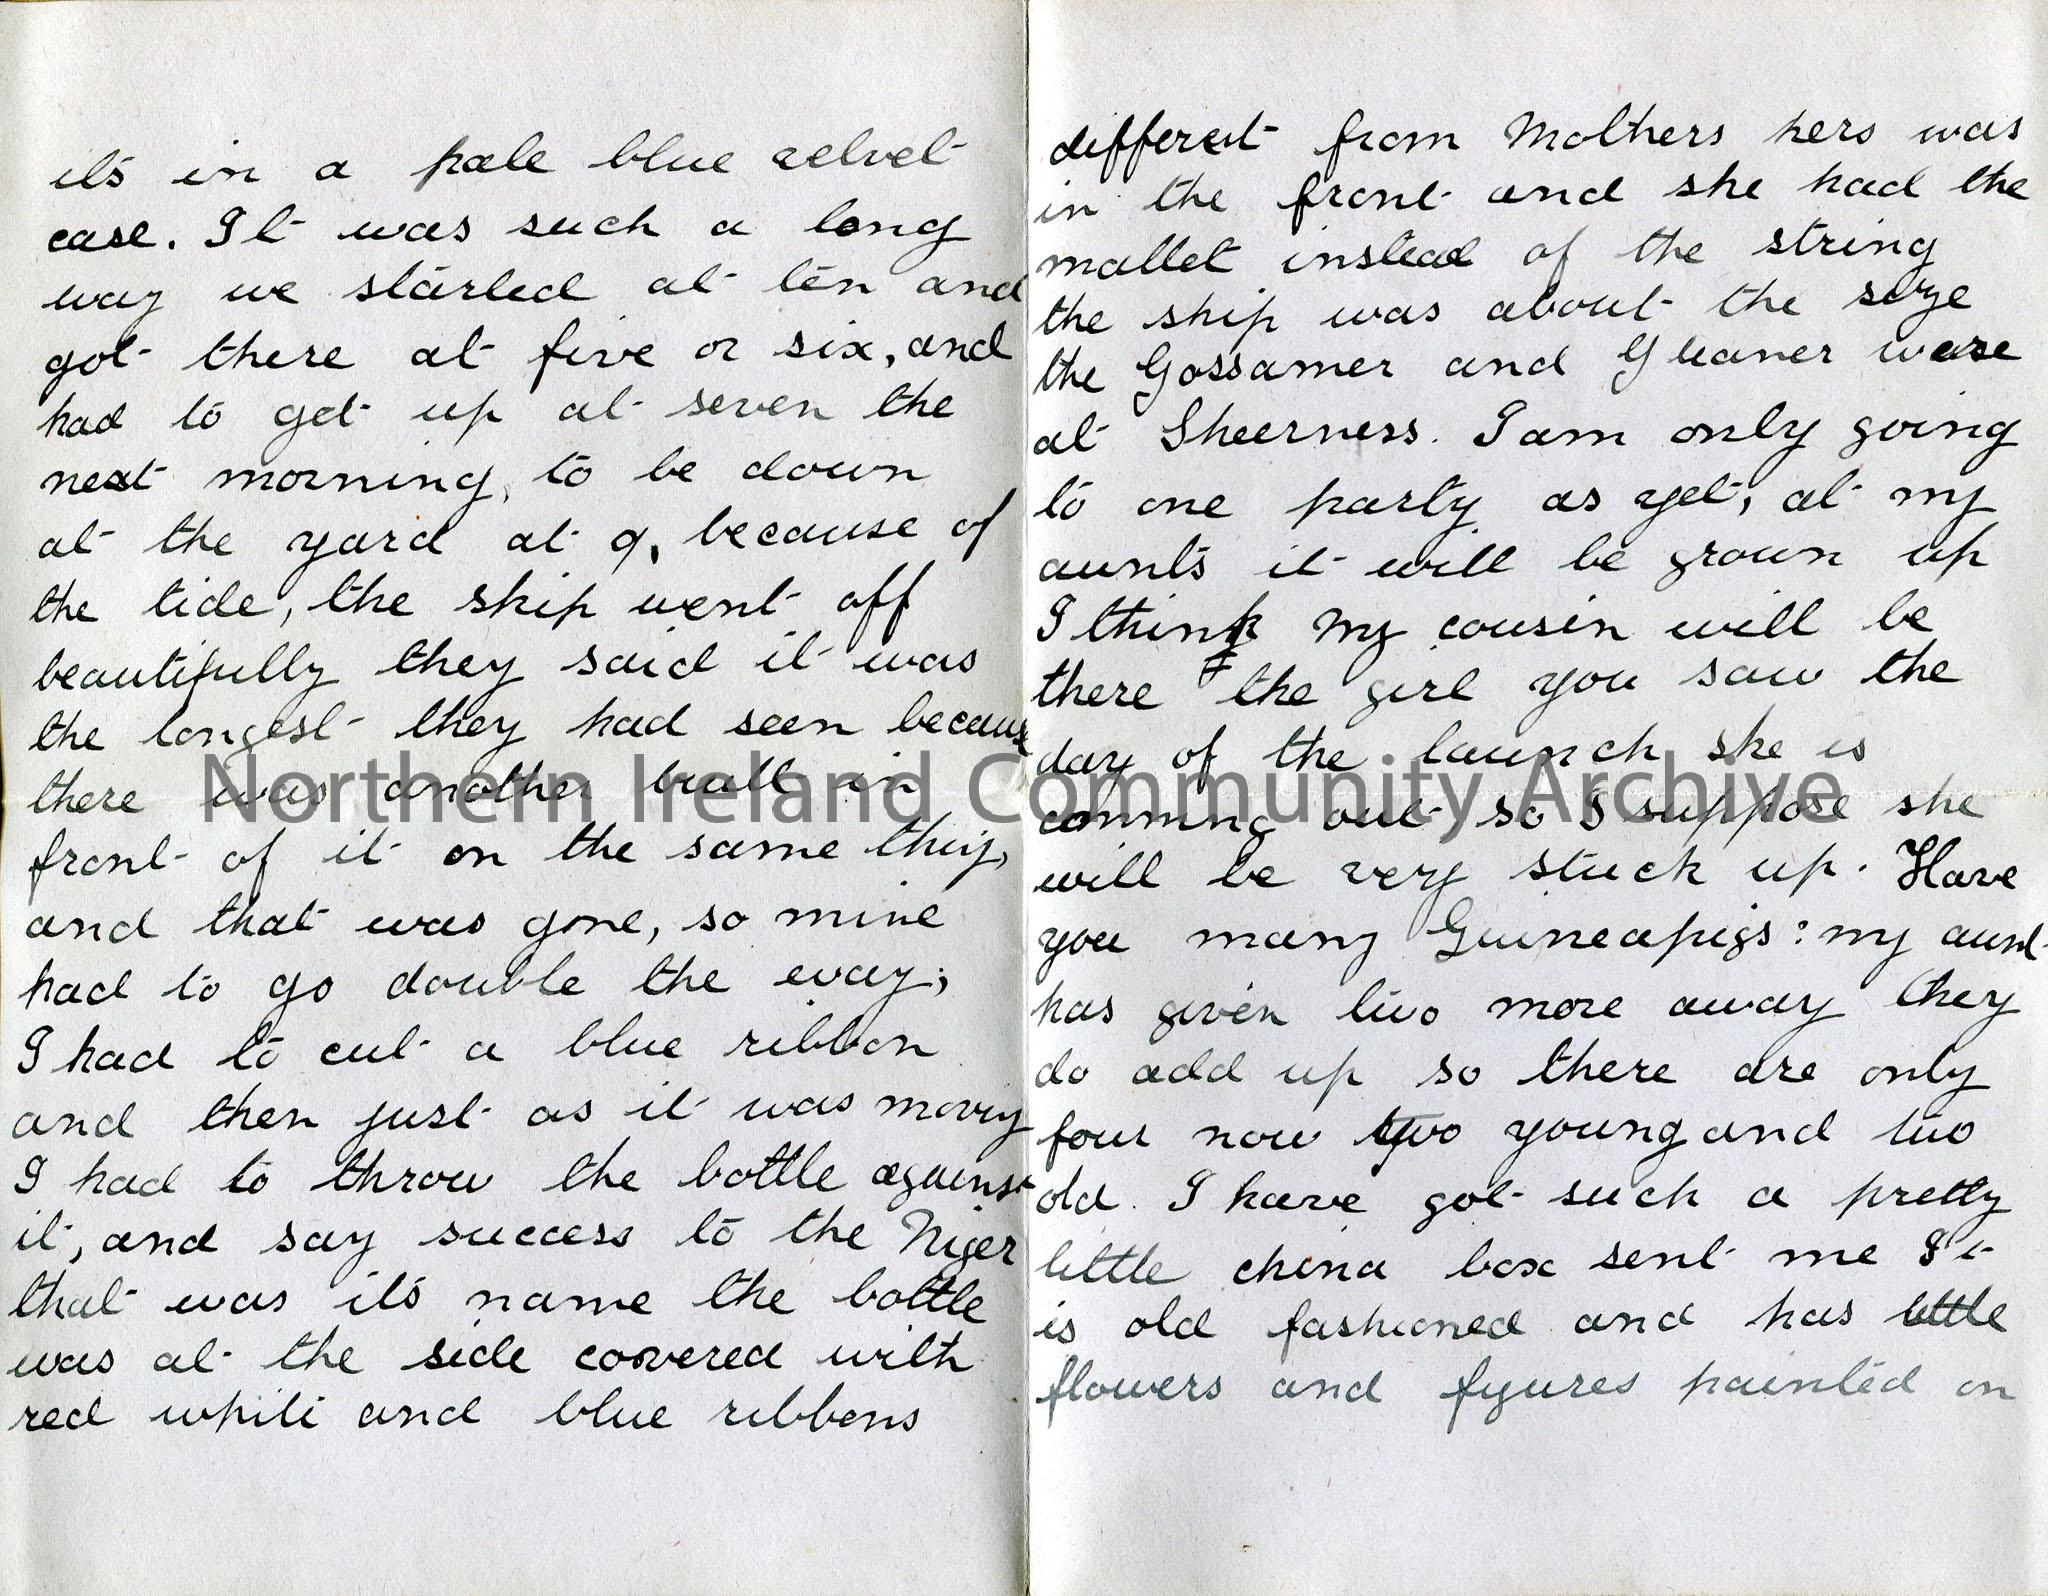 its in a pale blue velvet
case. It was such a long
way we started at ten and
got there at five or six, and
had to get up at seven the
next morning, to be down
at the yard at 9, because of
the tide, the ship went off
beautifully they said it was
the longest they had seen because
there was another built in
front of it on the same thing,
and that was gone, so mine
had to go double the way;
I had to cut a blue ribbon
and then just as it was moving
I had to throw the bottle against
it, and say success to the Niger
that was its name the bottle
was at the side covered with
red white and blue ribbons
different from Mothers hers was
in the front and she had the
mallet instead of the string
the ship was about the size
the Gossamer and Gleaner were
at Sheerness. I am only going
to one party as yet, at my
aunts it will be grown up
I think my cousin will be
there the girl you saw the
day of the launch she is
comming out so I suppose she
will be very stuck up. Have
you many Guineapigs? my aunt
has given two more away they
do add up so there are only
four now two young and two
old. I have got such a pretty
little china box sent me It
is old fashioned and has little
flowers and figures painted on
Northern Ireland Community Archive